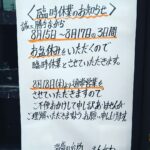 〈臨時休業のお知らせ〉
誠に勝手ながら
8月15日〜8月17日の3日間
お盆休みをいただくので
臨時休業とさせていただきます。
8月18日(木)より通常営業を
させていただきますので
ご不便おかけして申し訳ありませんが
ご理解いただきます様お願い申し上げます